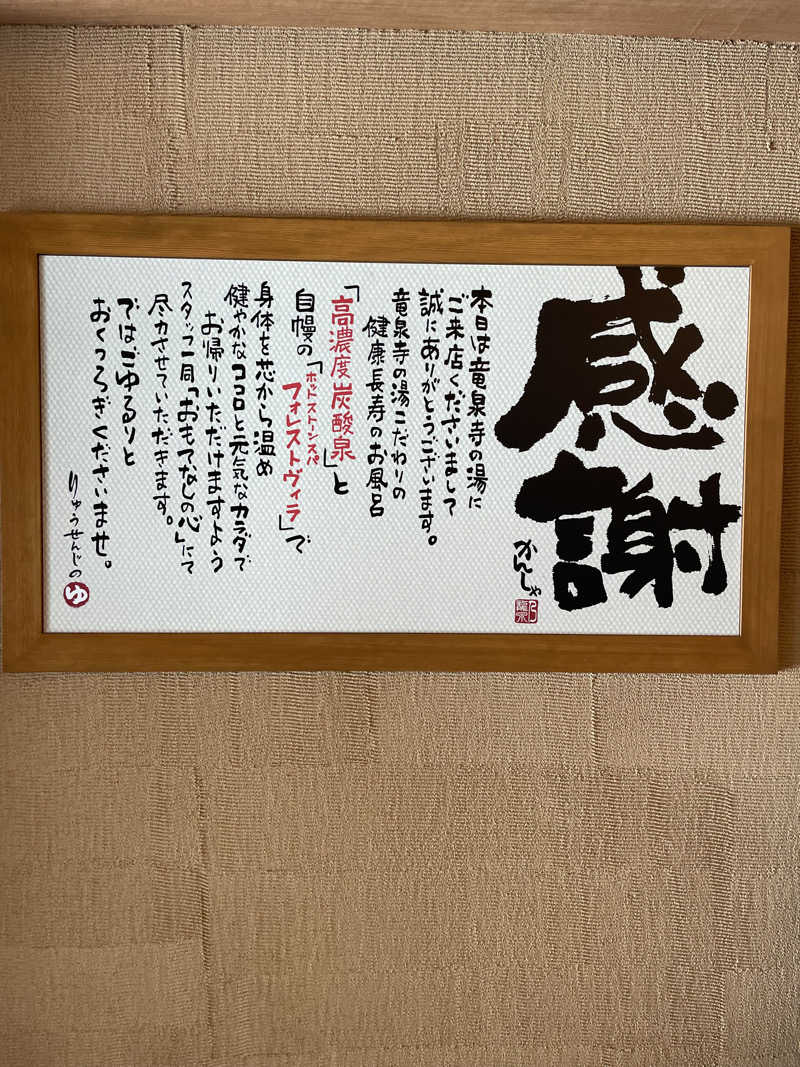 感謝
かんしゃ
本日は竜泉寺の湯に
ご来店くださいまして
誠にありがとうございます。
竜泉寺の湯こだわりの
健康長寿のお風呂
「高濃度炭酸泉」と
自慢の「フォレストヴィラ」で
ホットストーンスパ
身体を芯から温め
健やかなココロと元気なカラダで
お帰りいただけますよう
スタッフ一同「おもてなしの心」にて
尽力させていただきます。
ではごゆるりと
おくつろぎくださいませ。
りゅうせんじのゆ